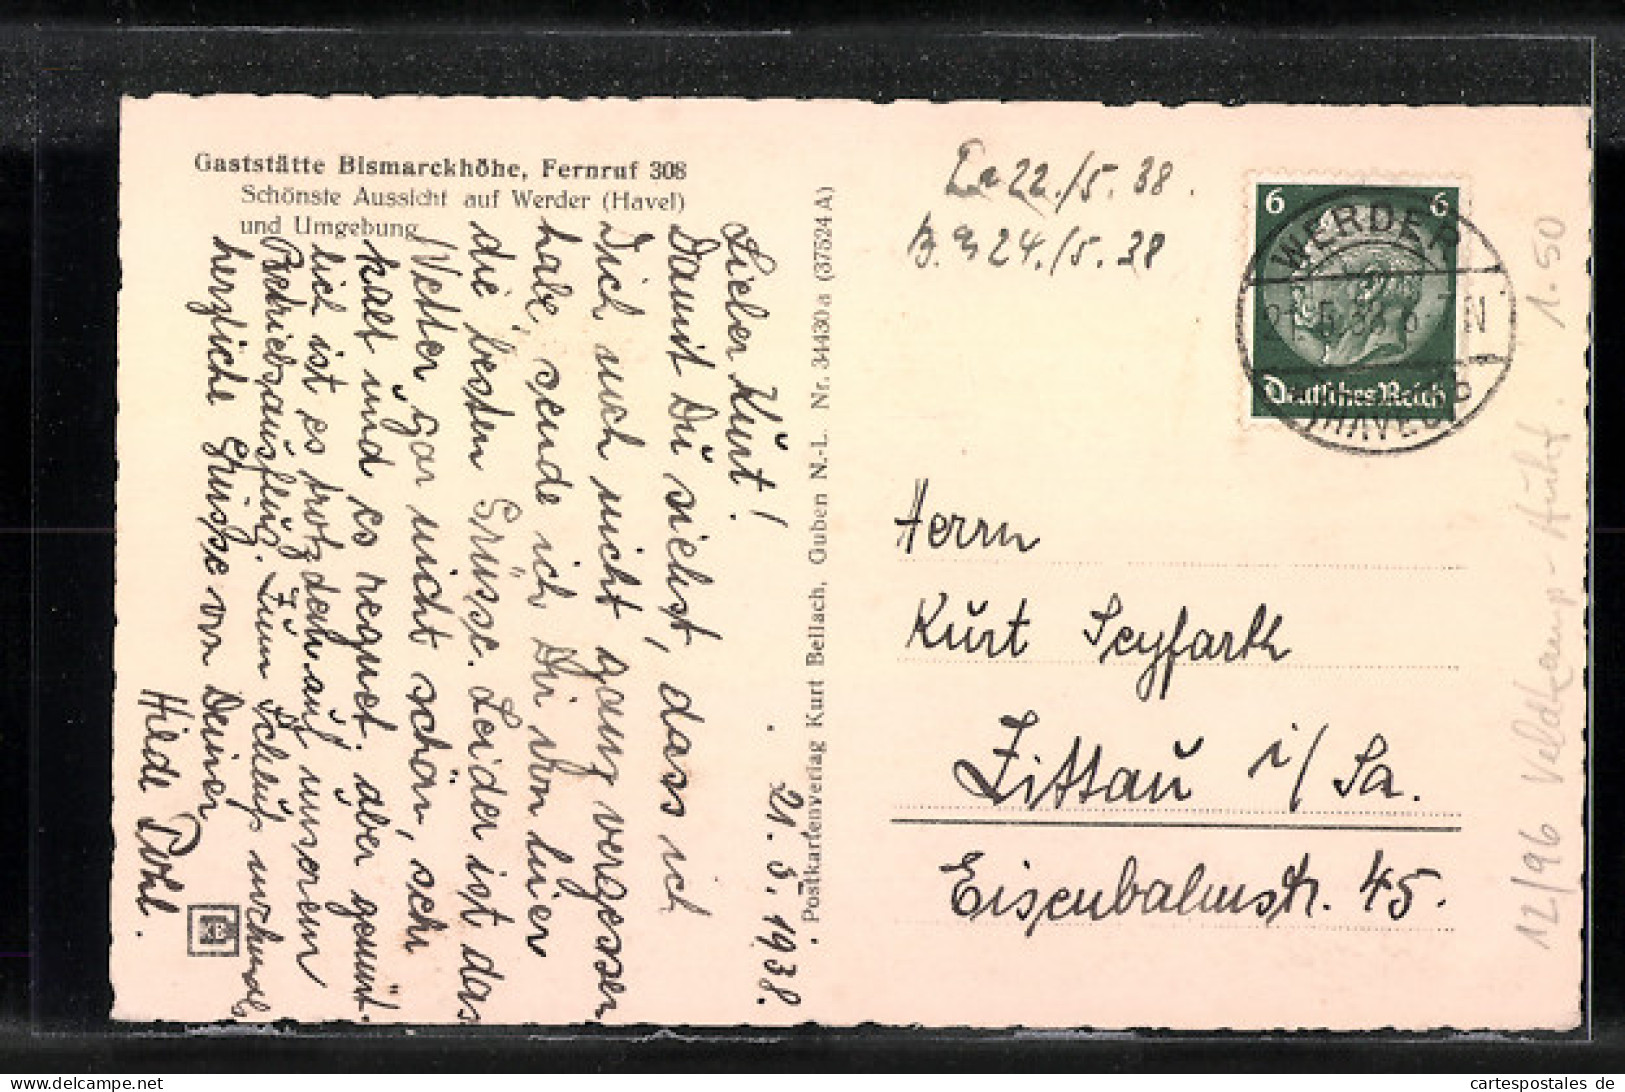 Gaststätte Bismarckhöhe, Fernruf 308
Schönste Aussicht auf Werder (Havel)
und Umgebung
21. 5. 1938.
Lieber Kurt!
Damit Du siehst, dass ich
Dich auch nicht ganz vergessen
habe, sende ich Dir von hier
die besten Grüsse. Leider ist das
Wetter gar nicht schön, sehr
kalt und es regnet. aber gemüt-
lich ist es trotzdem auf unserem
Betriebsausflug. Zum Schluss nochmals
herzliche Grüsse von Deiner
Hilde Pohl.
Postkartenverlag Kurt Bellach, Guben N.-L. Nr. 34430a (37524A)
22./5. 38.
24./5. 38
6 6
Deutsches Reich
WERDER
(HAVEL)
Herrn
Kurt Seyfarth
Zittau i/Sa.
Eisenbahnstr. 45.
12/96 1.50
cartespostales de